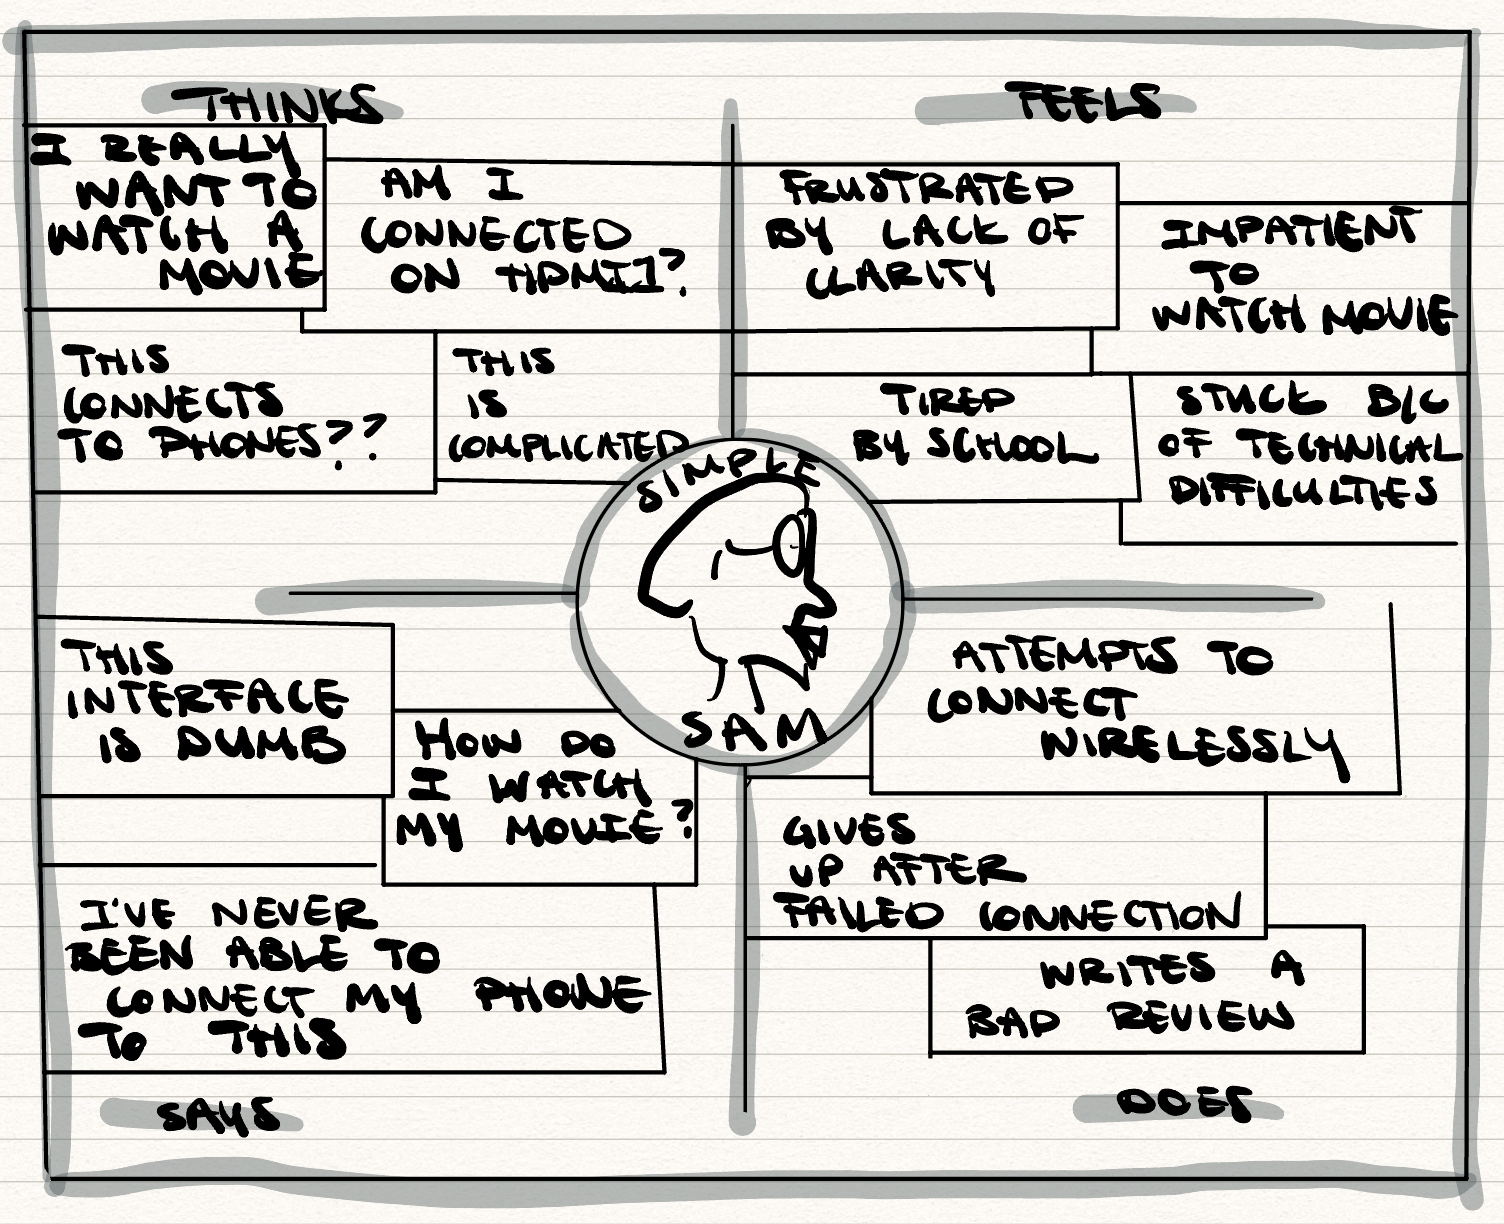 THINKS
I REALLY
WANT TO
WATCH A
MOVIE
AM I
CONNECTED
ON HDMI1?
THIS
CONNECTS
TO PHONES??
THIS
IS
COMPLICATED
FEELS
FRUSTRATED
BY LACK OF
CLARITY
IMPATIENT
TO
WATCH MOVIE
TIRED
BY SCHOOL
STUCK B/C
OF TECHNICAL
DIFFICULTIES
SIMPLE
SAM
THIS
INTERFACE
IS DUMB
HOW DO
I WATCH
MY MOVIE?
I'VE NEVER
BEEN ABLE TO
CONNECT MY PHONE
TO THIS
SAYS
ATTEMPTS TO
CONNECT
WIRELESSLY
GIVES
UP AFTER
FAILED CONNECTION
WRITES A
BAD REVIEW
DOES